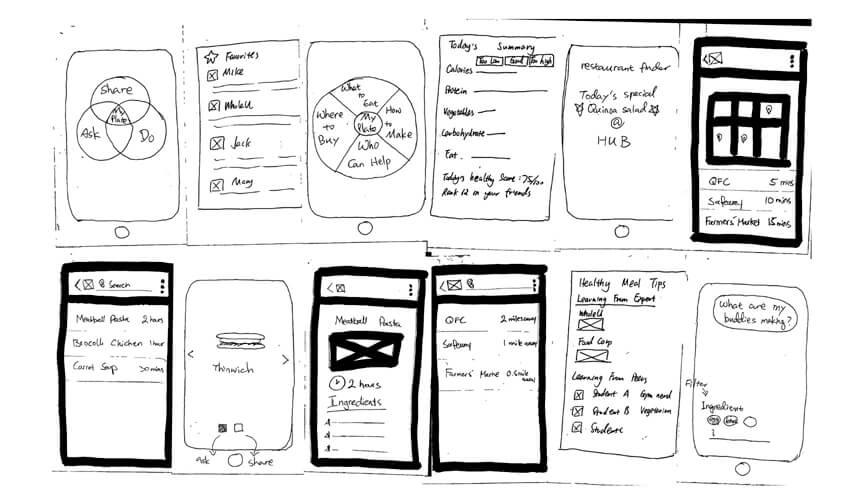 Share
My
Plate
Ask
Do
Favorites
Mike
WholeU
Jack
Mary
What
to
Eat
Where
to
Buy
How
to
Make
My
Plate
Who
Can Help
Today's Summary
Too Low Good Too high
Calories
Protein
Vegetables
Carbohydrate
Fat
Today's healthy Score: 75/100
Rank 12 in your friends
restaurant finder
Today's special
Quinoa salad
@
HUB
QFC 5 mins
Safeway 10 mins
Farmers' Market 15 mins
Search
Meatball Pasta 2 hours
Brocolli Chicken 1 hour
Carrot Soup 30 mins
Thinwich
ask
share
Meatball Pasta
2 hours
Ingredients
QFC 2 miles away
Safeway 1 mile away
Farmers' Marke 0.5 mile
away
Healthy Meal Tips
Learning From Expert
WholeU
Food Corp
Learning From Peers
Student A Gym nerd
Student B Vegetarian
Students
What are my
buddies making?
Filter
Ingredient